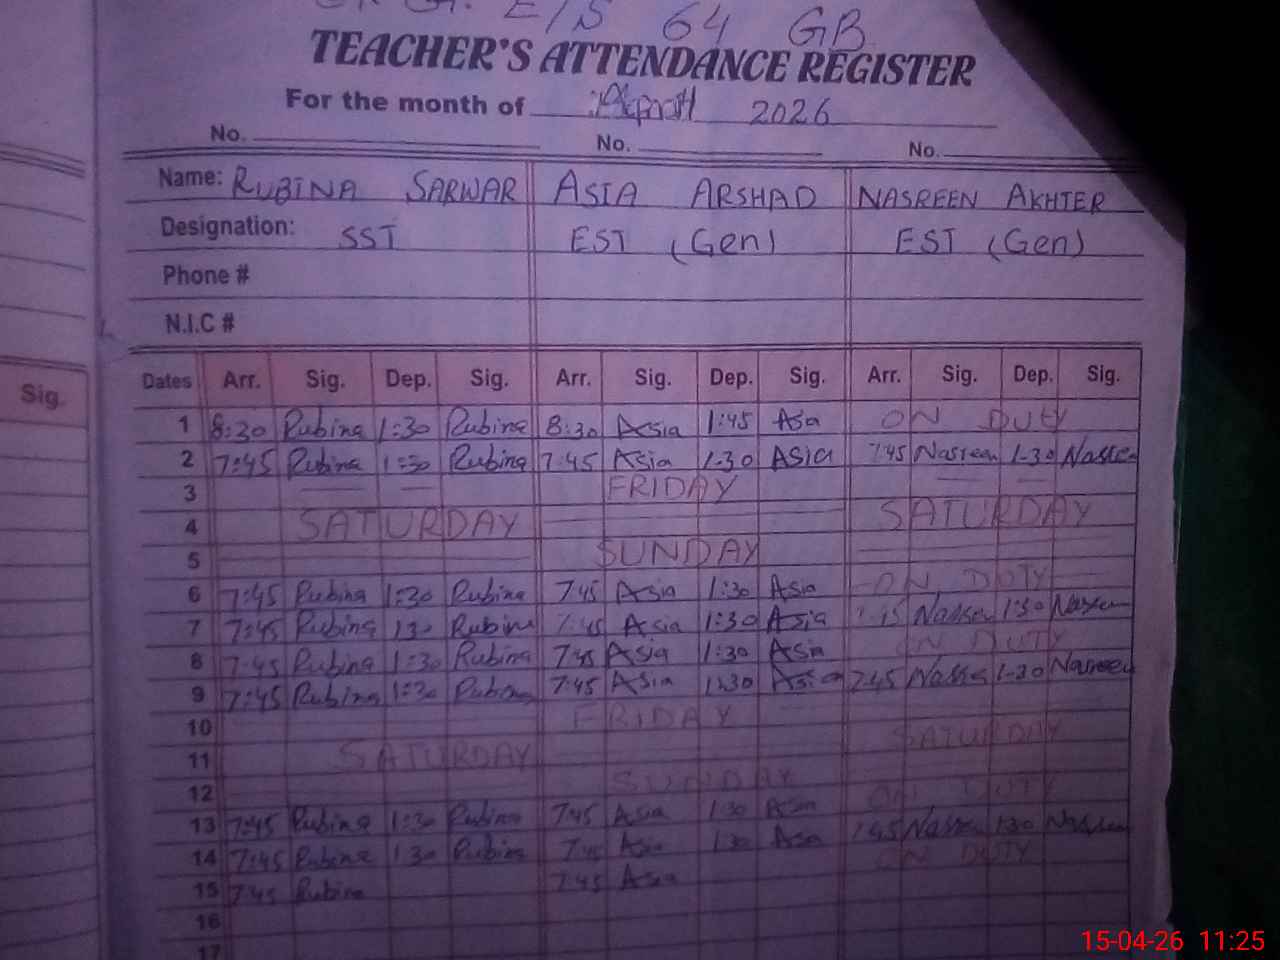 E/S 64 GB
TEACHER'S ATTENDANCE REGISTER
For the month of April 2026
No. No. No.
Name: RUBINA SARWAR ASIA ARSHAD NASREEN AKHTER
Designation: SST EST (Gen) EST (Gen)
Phone #
N.I.C #
Sig.
Dates Arr. Sig. Dep. Sig. Arr. Sig. Dep. Sig. Arr. Sig. Dep. Sig.
1 8:30 Rubina 1:30 Rubina 8:30 Asia 1:45 Asia ON DUTY
2 7:45 Rubina 1:30 Rubina 7:45 Asia 1-30 ASIA 7:45 Nasreen 1-30 Nasreen
3 FRIDAY
4 SATURDAY SATURDAY
5 SUNDAY
6 7:45 Rubina 1:30 Rubina 7:45 Asia 1:30 Asia ON DUTY
7 7:45 Rubina 130 Rubina 7:45 Asia 1:30 Asia 7:45 Nasreen 1:30 Nasreen
8 7:45 Rubina 1:30 Rubina 7:45 Asia 1:30 Asia ON DUTY
9 7:45 Rubina 1:30 Rubina 7:45 Asia 1:30 Asia 7:45 Nasreen 1-30 Nasreen
10 FRIDAY
11 SATURDAY SATURDAY
12 SUNDAY
13 7:45 Rubina 1:30 Rubina 7:45 Asia 1:30 Asia ON DUTY
14 7:45 Rubina 130 Rubina 7:45 Asia 130 Asia 7:45 Nasreen 130 Nasreen
15 7:45 Rubina 7:45 Asia ON DUTY
16
17
15-04-26 11:25